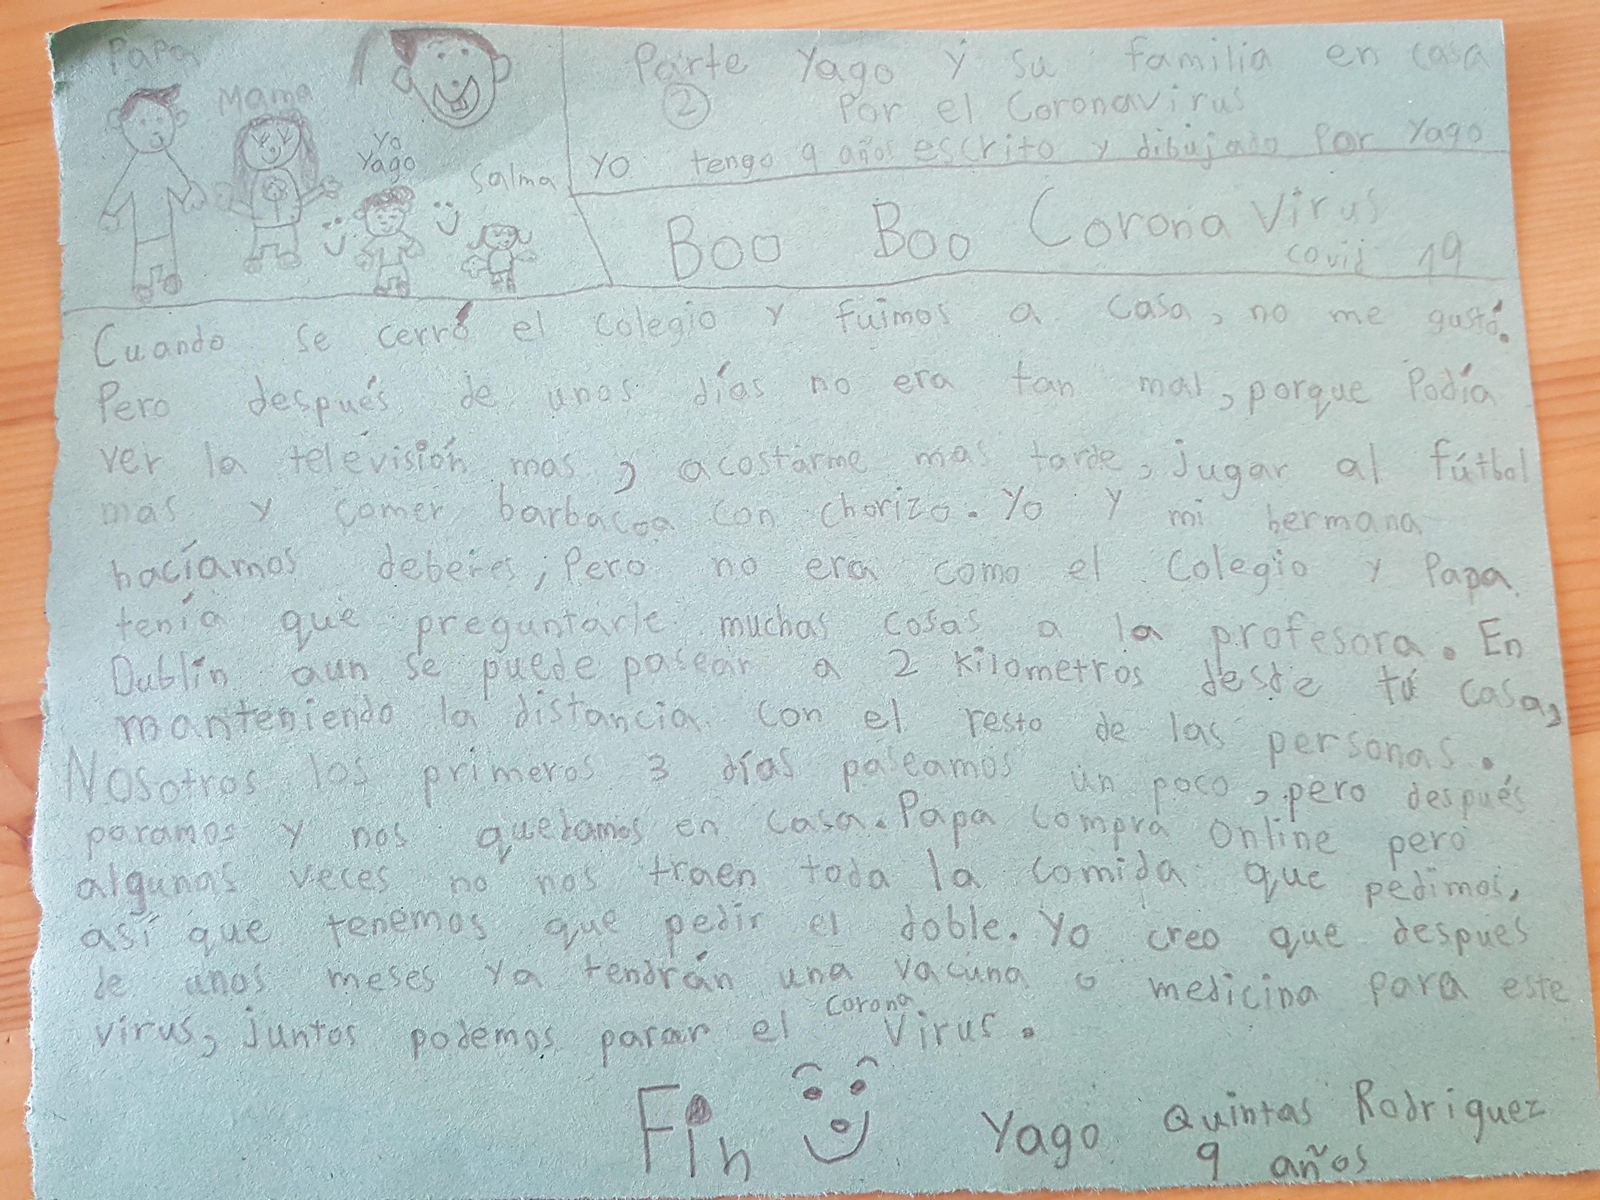 Papa
Mama
Yo
Yago
Salma
Parte Yago y su familia en casa
2 Por el Coronavirus
Yo tengo 9 años escrito y dibujado Por Yago
Boo Boo Corona Virus
covid 19
Cuando se cerró el colegio y fuimos a casa, no me gustó.
Pero después de unos días no era tan mal, porque Podía
ver la televisión mas, acostarme mas tarde, jugar al fútbol
mas y comer barbacoa con chorizo. Yo y mi hermana
hacíamos deberes, Pero no era como el Colegio y Papa
tenía que preguntarle muchas cosas a la profesora. En
Dublín aun se puede pasear a 2 Kilometros desde tú casa,
manteniendo la distancia con el resto de las personas.
Nosotros los primeros 3 días paseamos un poco, pero después
paramos y nos quedamos en casa. Papa compra Online pero
algunas veces no nos traen toda la comida que pedimos,
así que tenemos que pedir el doble. Yo creo que despues
de unos meses ya tendrán una vacuna o medicina para este
virus, juntos podemos parar el Corona Virus.
Fin
Yago Quintas Rodriguez
9 años